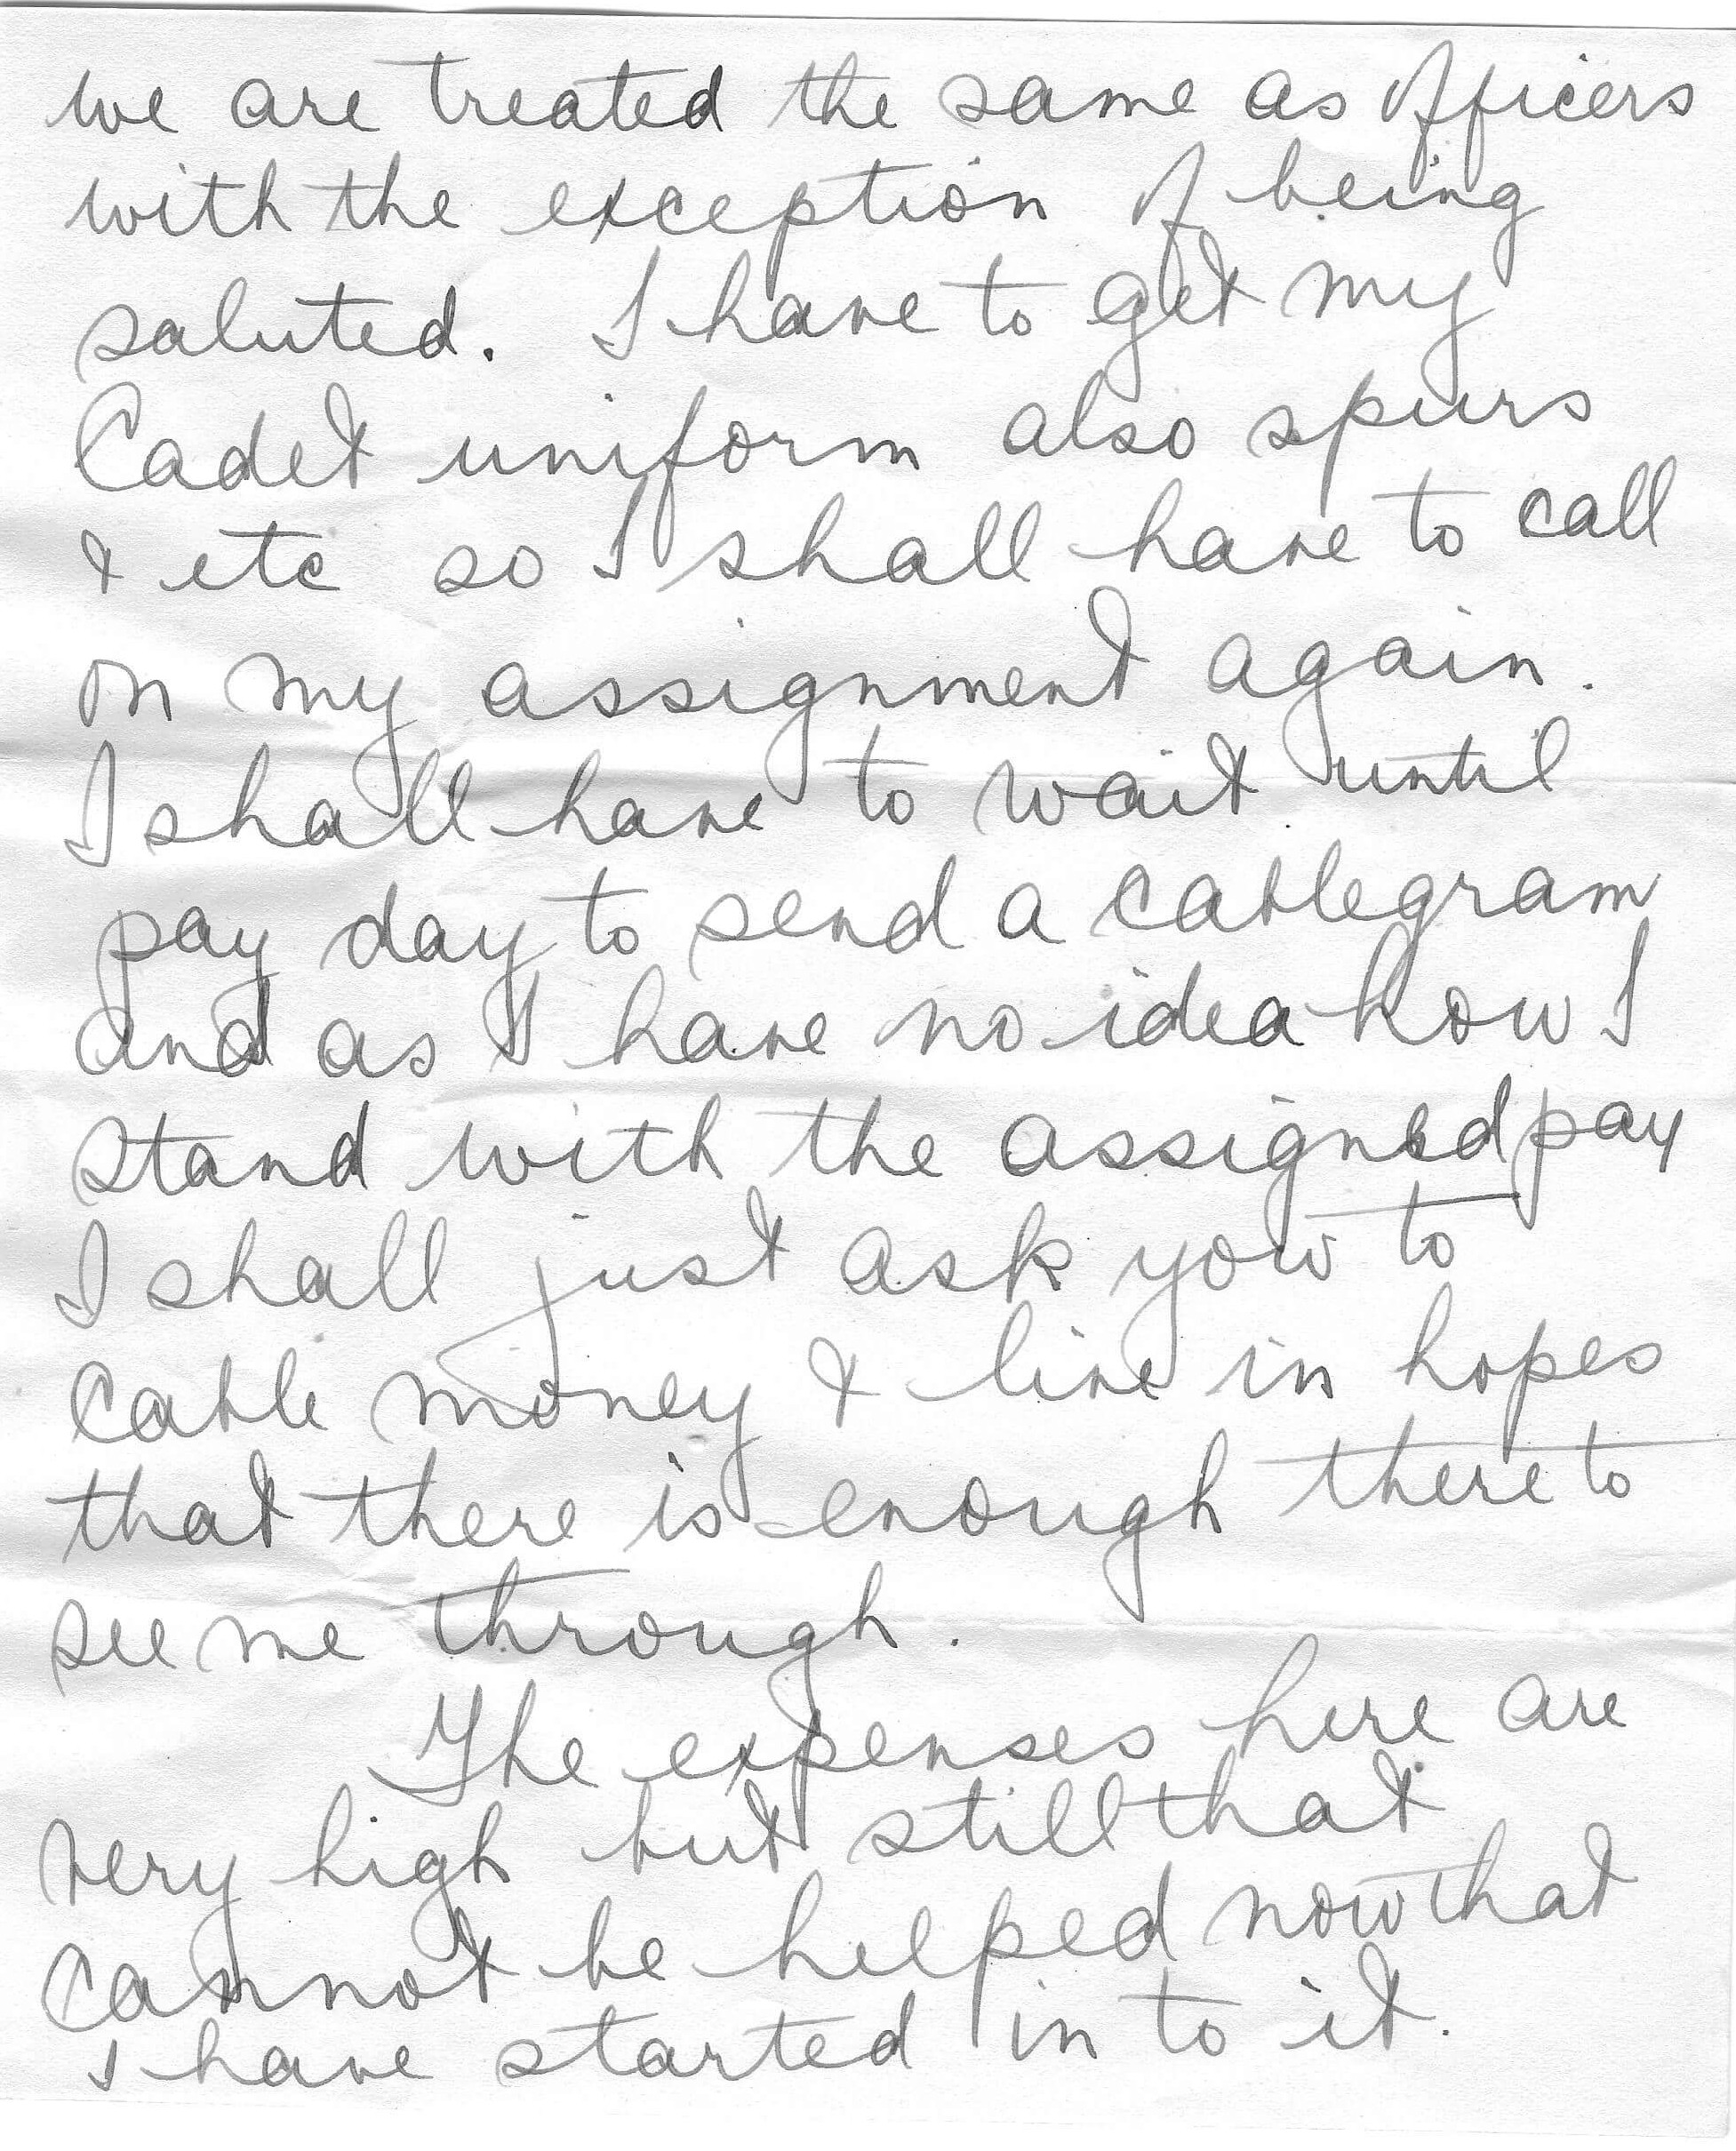 we are treated the same as officers
with the exception of being
saluted. I have to get my
Cadet uniform also spurs
& etc so I shall have to call
on my assignment again.
I shall have to wait until
pay day to send a cablegram
and as I have no idea how I
stand with the assigned pay
I shall just ask you to
cable money & live in hopes
that there is enough there to
see me through.
The expenses here are
very high but still that
cannot be helped now that
I have started in to it.